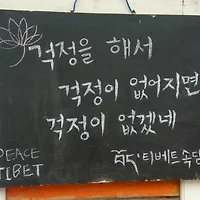 걱정을 해서
걱정이 없어지면
걱정이 없겠네
བོད་ · 티베트 속담
PEACE
TIBET